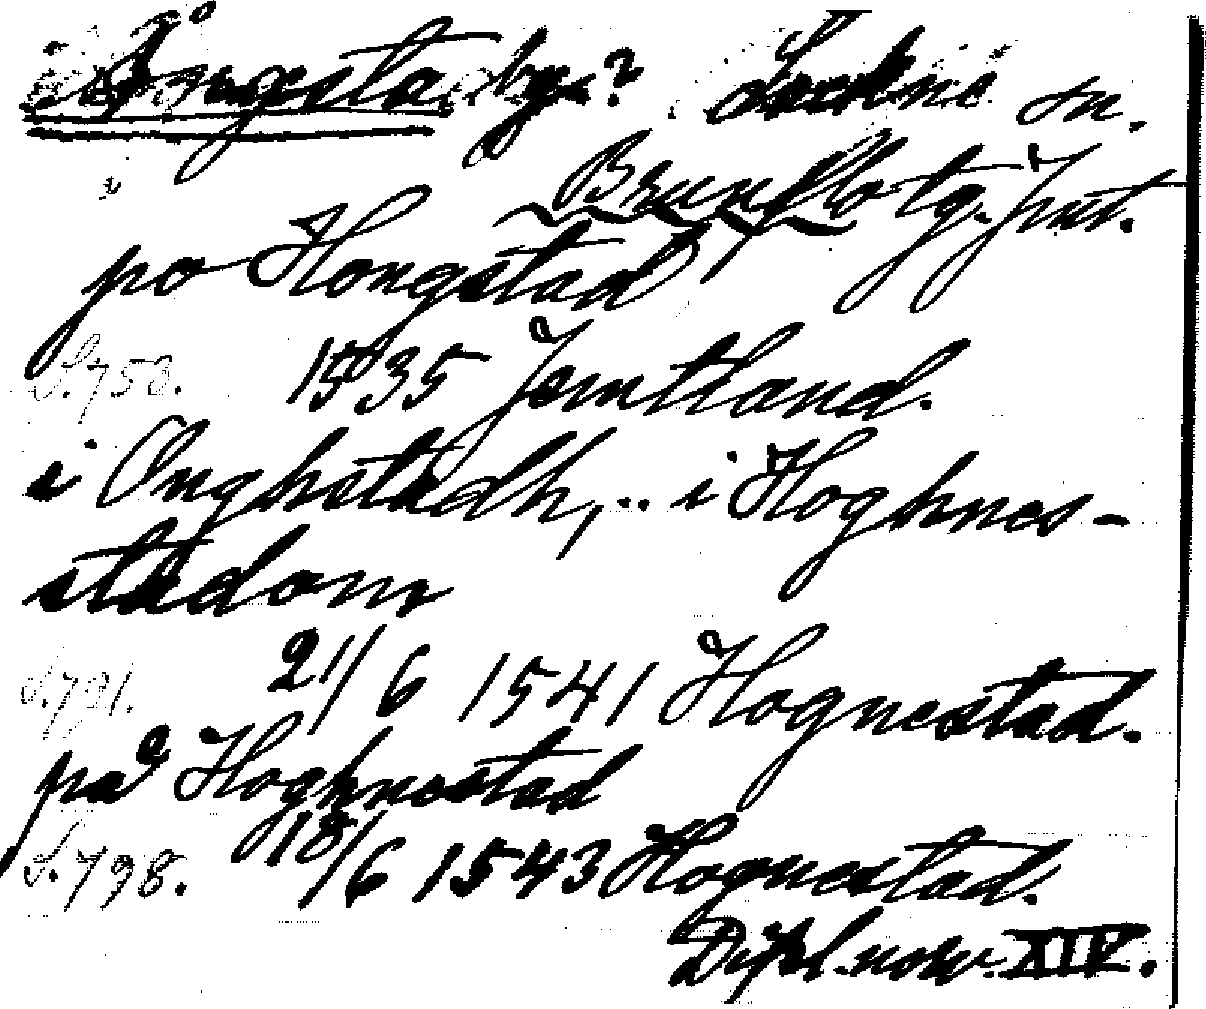 Ångsta by? Lockne sn.
Brunflo tg. Jmt.
po Hongstad
S. 758. 1535 Jemtland.
i Onghstadh, .. i Hoghnes-
stadom
S. 791. 21/6 1541 Hognestad.
på Hoghnestad
S. 798. 18/6 1543 Hognestad.
Dipl. norv. XIV.